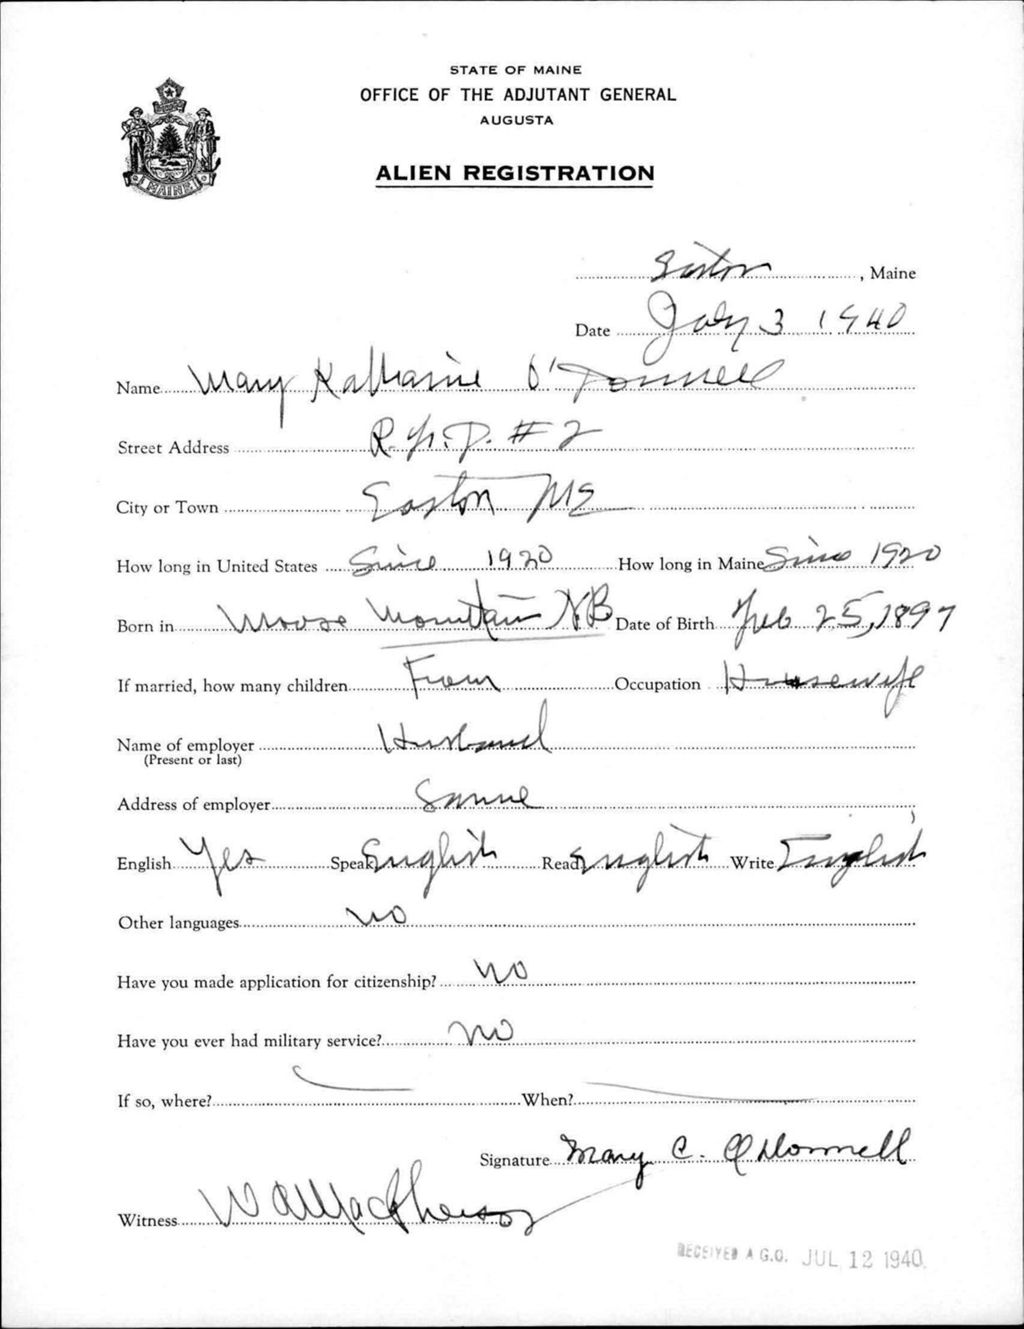 STATE OF MAINE
OFFICE OF THE ADJUTANT GENERAL
AUGUSTA
ALIEN REGISTRATION
MAINE
Easton, Maine
Date July 3 1940
Name Mary Katharine O'Donnell
Street Address R.F.D. #2
City or Town Easton ME
How long in United States Since 1920 How long in Maine Since 1920
Born in Moose Mountain NB Date of Birth Feb 25, 1897
If married, how many children Occupation Housewife
Name of employer Husband
(Present or last)
Address of employer Same
English Yes Speak English Read English Write English
Other languages No
Have you made application for citizenship? No
Have you ever had military service? No
If so, where? When?
Signature Mary C. O'Donnell
Witness W A MacPherson
RECEIVED A.G.O. JUL 12 1940.